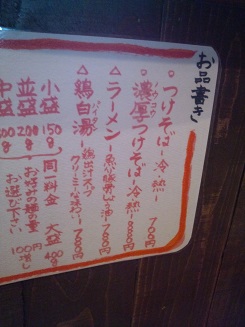 お品書き
○つけそば-冷・熱-
700円
○濃厚つけそば-冷・熱-
△ラーメン-魚介豚骨しょう油-
700円
△鶏白湯-鶏出汁スープ
クリーミィな味わい
小盛 150g
並盛 200g
中盛 300g
同一料金
大盛 400g
お好みの麺の量
お選び下さい
100円増し